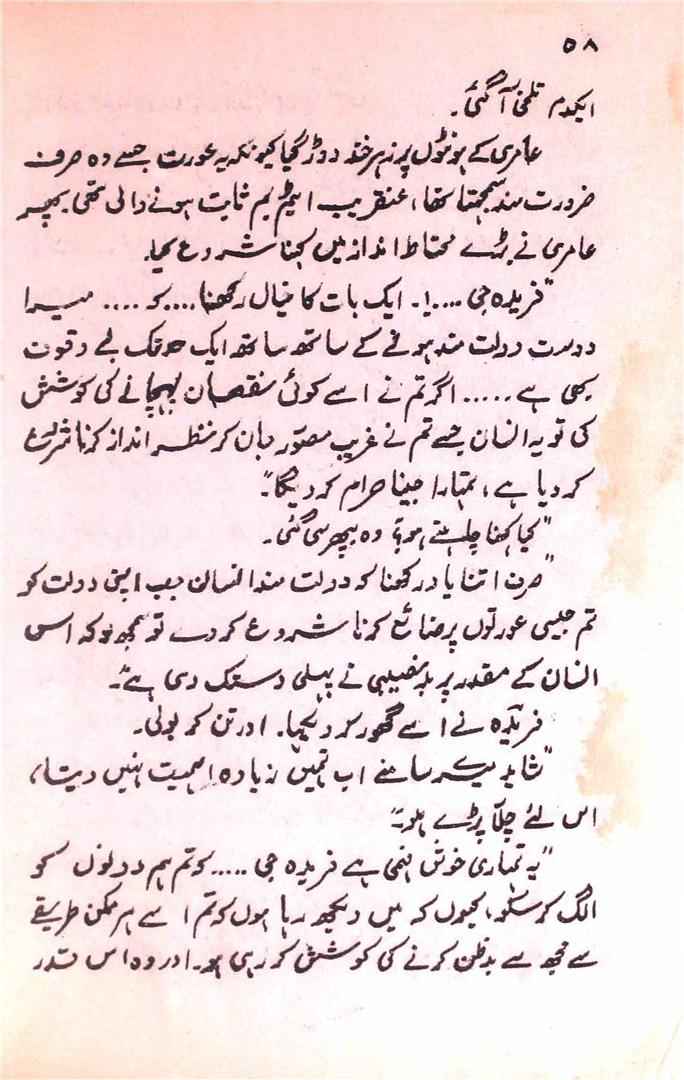 ۵۸
ایکدم تلخی آ گئی۔
عامری کے ہونٹوں پر زہر خند دوڑ گیا کیونکہ یہ عورت جسے وہ صرف
ضرورت مند سمجھتا تھا، عنقریب ایٹم بم ثابت ہونے والی تھی۔ پھر
عامری نے بڑے محتاط انداز میں کہنا شروع کیا۔
"فریدہ جی ....!۔ ایک بات کا خیال رکھنا.... کہ .... میرا
دوست دولت مند ہونے کے ساتھ ساتھ ایک حد تک بے وقوف
بھی ہے ..... اگر تم نے اسے کوئی نقصان پہنچانے کی کوشش
کی تو یہ انسان جسے تم نے غریب مصور جان کر نظر انداز کرنا شروع
کر دیا ہے، تمہارا جینا حرام کر دیگا"۔
"کیا کہنا چاہتے ہو؟ وہ بپھر سی گئی۔
"صرف اتنا یاد رکھنا کہ دولت مند انسان جب اپنی دولت کو
تم جیسی عورتوں پر ضائع کرنا شروع کر دے تو سمجھ لو کہ اس
انسان کے مقدر پر بدنصیبی نے پہلی دستک دی ہے"۔
فریدہ نے اسے گھور کر دیکھا۔ اور تن کر بولی۔
"شاہد میرے سامنے اب تمہیں زیادہ اہمیت نہیں دیتا،
اس لئے چلا پڑے ہو"۔
"یہ تمہاری خوش فہمی ہے فریدہ جی ..... کہ تم ہم دونوں کو
الگ کر سکو، کیوں کہ میں دیکھ رہا ہوں کہ تم اسے ہر ممکن طریقے
سے مجھ سے بدظن کرنے کی کوشش کر رہی ہو۔ اور وہ اس قدر